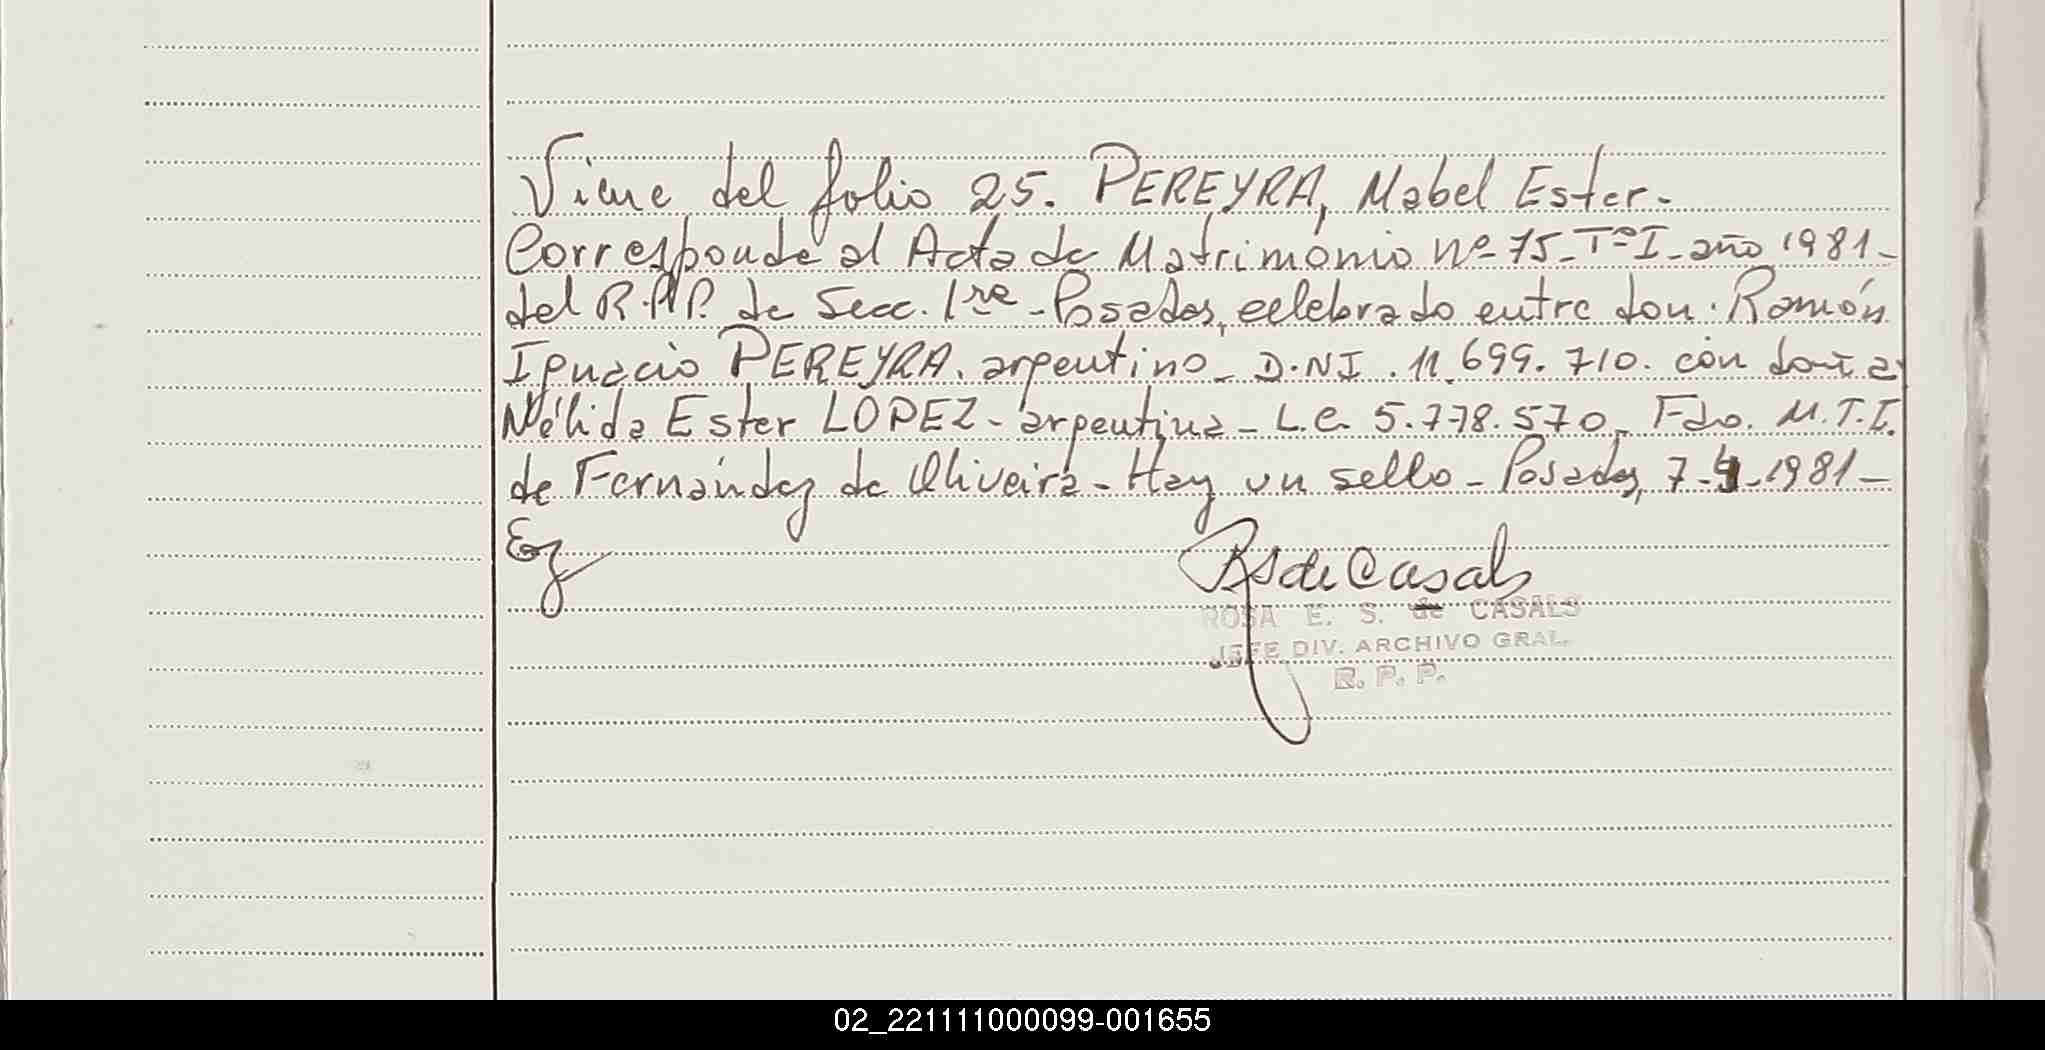 Viene del folio 25. PEREYRA, Mabel Ester.-
Corresponde al Acta de Matrimonio Nº 75-Tº I-año 1981-
del R.P.P. de Secc. 1ra - Posadas, celebrado entre don. Ramón
Ignacio PEREYRA. argentino - D.N.I. 11.699.710. con doña
Nélida Ester LOPEZ - argentina - L.C. 5.778.570 - Fdo. M.T.I.
de Fernández de Oliveira - Hay un sello - Posadas, 7- -1981-
RS de Casals
ROSA E. S. de CASALS
JEFE DIV. ARCHIVO GRAL.
R. P. P.
02_221111000099-001655